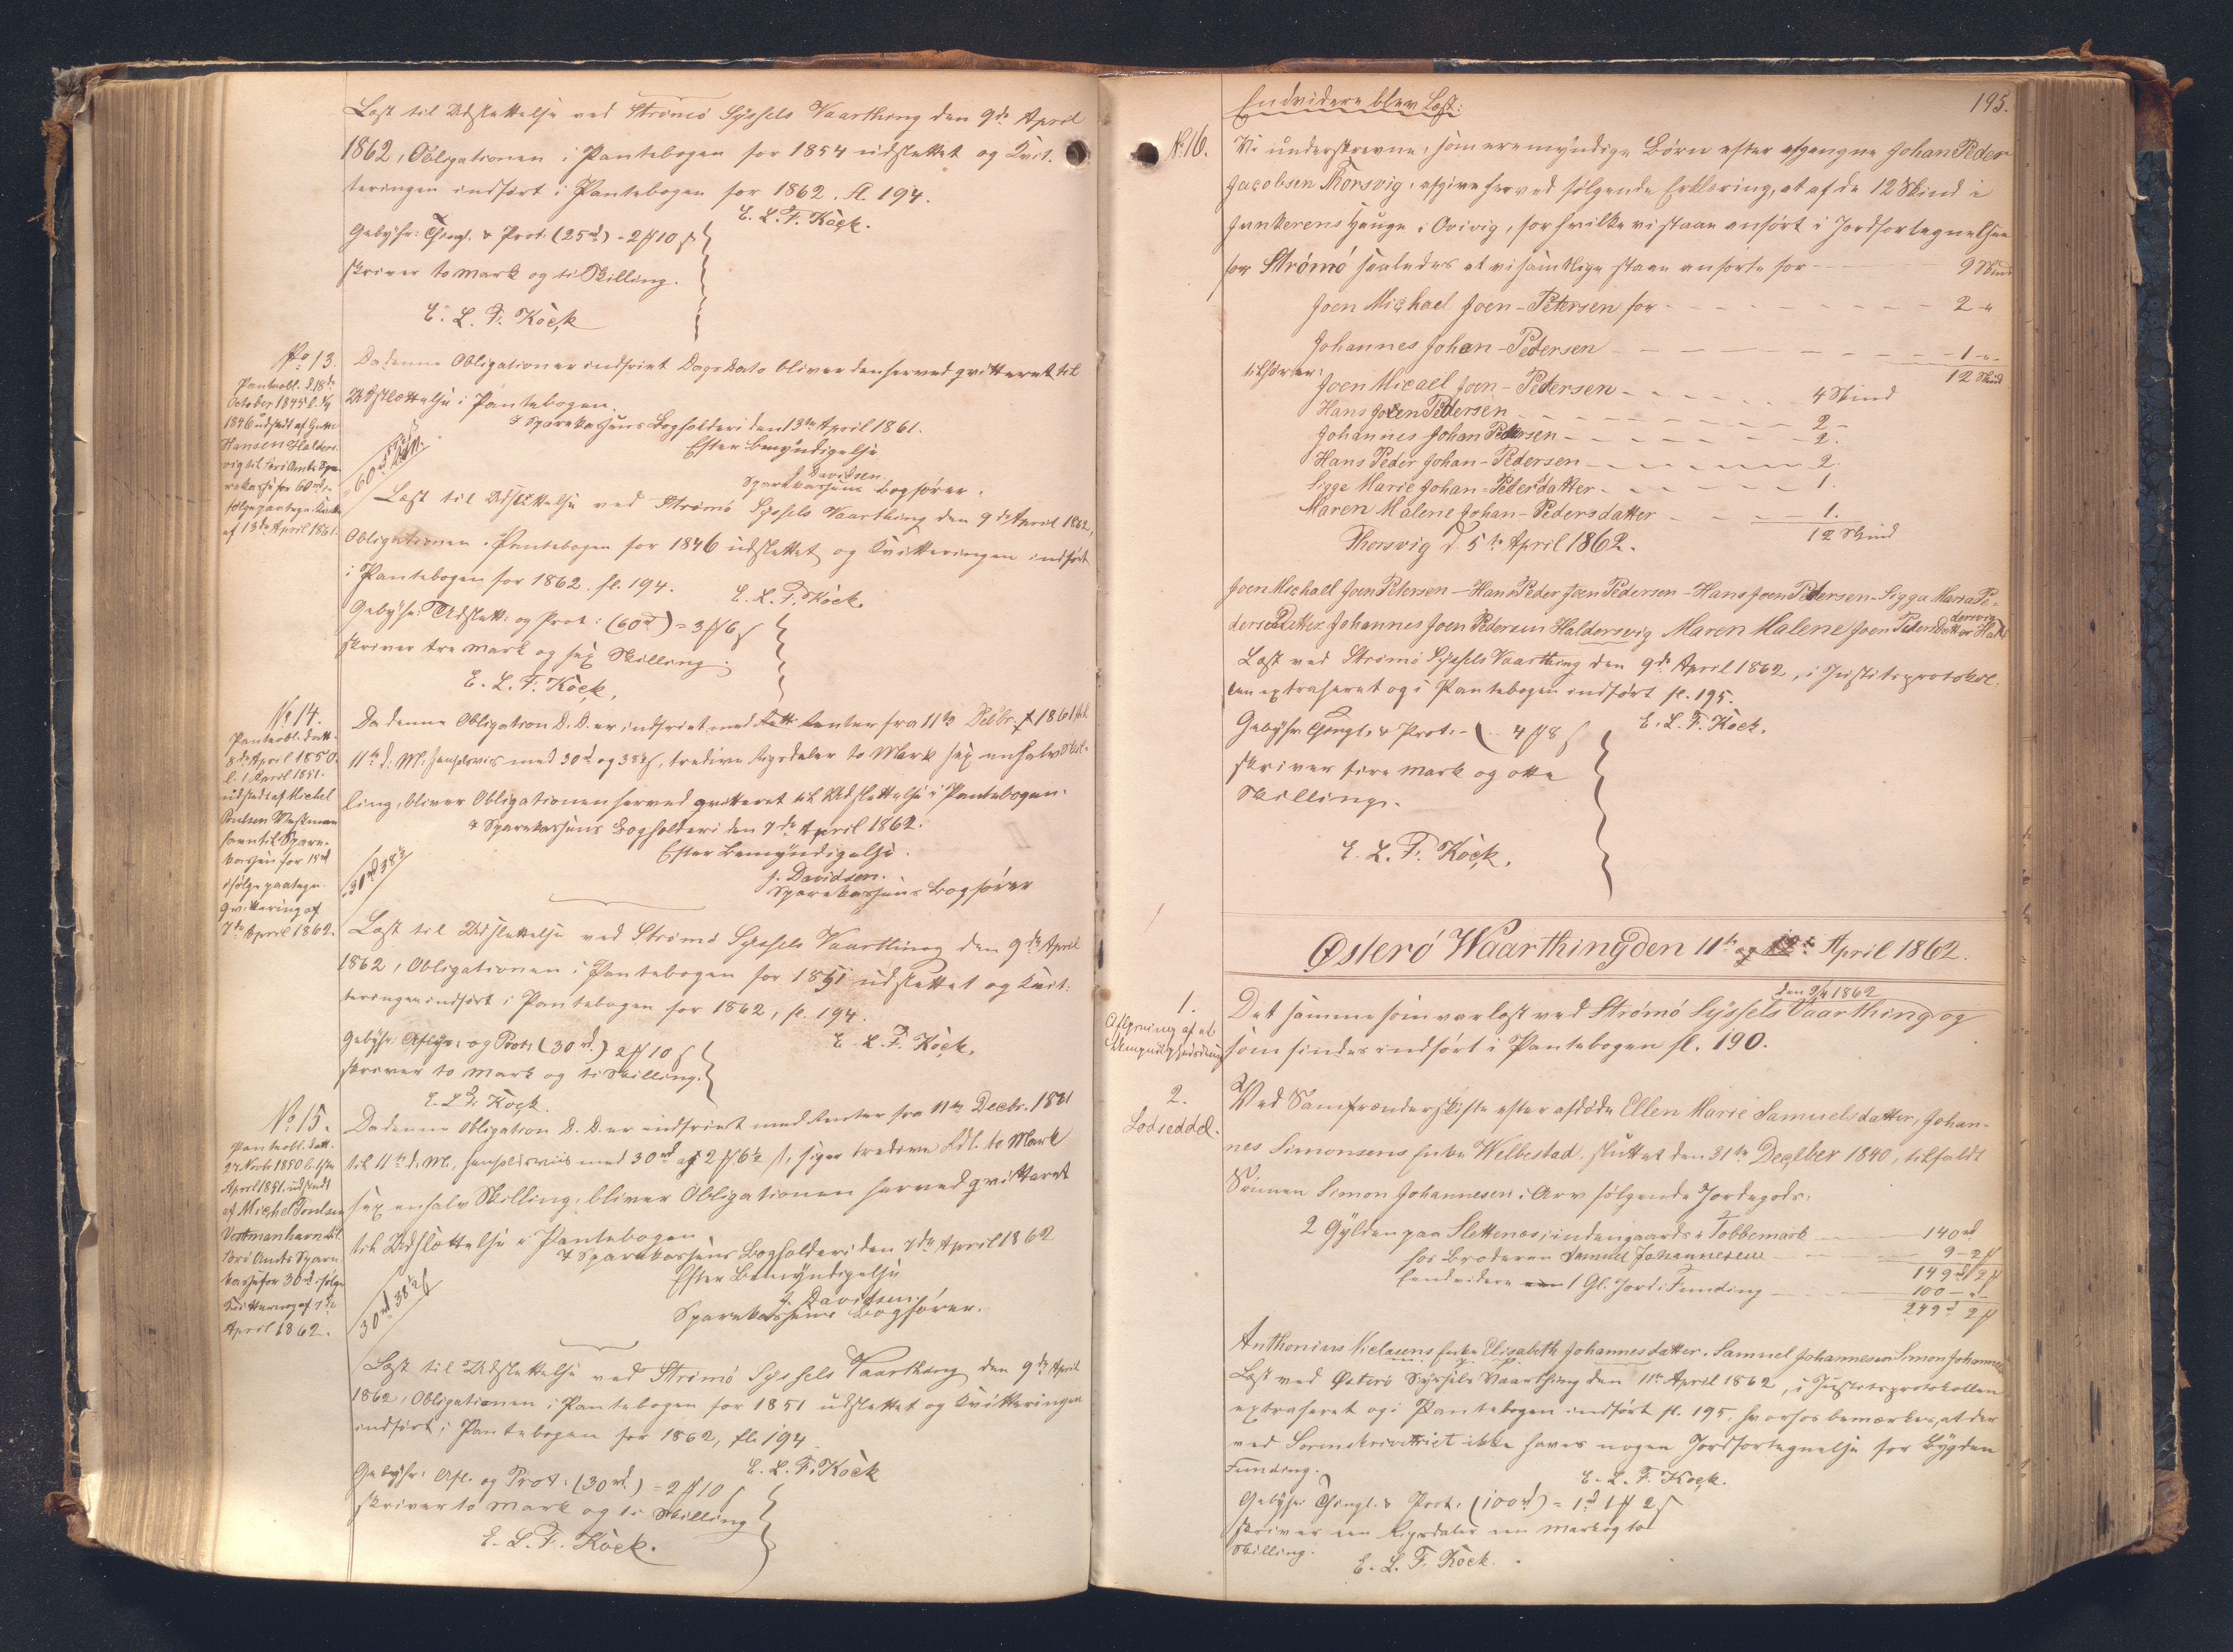 Læst til Udslettelse ved Strømø Syssels Vaarthing den 9de April
1862, Obligationen i Pantebogen for 1854 udslettet og Qvit-
teringen indført i Pantebogen for 1862. fl. 194.
E. L. F. Köck.
Gebyhr: Thingl. & Prot. (25rd) = 2 ℳ 10 ß
skriver to Mark og ti Skilling.
E. L. F. Köck
No 13.
Panteobl. d. 18de
October 1845 l. 1/4
1846 udstedt af Gutte
Hansen Halders-
vig til Færø Amts Spa-
rekasse for 60rd i-
følge paategn. Kvitt.
af 13de April 1861.
Da denne Obligation er indfriet Dags Dato bliver den herved qvitteret til
Udslættelse i Pantebogen.
I Sparekassens Bogholderi den 13de April 1861.
Efter Bemyndigelse
J. Davidsen.
Sparekassens Bogfører.
Læst til Udslettelse ved Strømø Syssels Vaarthing den 9de April 1862,
Obligationen i Pantebogen for 1846 udslettet og Kvitteringen indført
i Pantebogen for 1862. fl. 194.
E. L. F. Köck.
Gebyhr: Udslett: og Prot: (60rd) = 3 ℳ 6 ß
skriver tre Mark og sex Skilling.
E. L. F. Köck.
No 14.
Panteobl. datt.
8de April 1850.
l. 1 April 1851.
udstedt af Michel
Poulsen Westman-
havn til Spare-
kassen for 15rd
ifølge paategn.
Qvittering af
7de April 1862.
Da denne Obligation D. D. er indfriet med Renter fra 11te Decbr. 1861 til
11te d. M. henholdsviis med 30rd og 38½ ß, tredive Rigsdaler to Mark sex en halv Skil-
ling, bliver Obligationen herved qvitteret til Udslettelse i Pantebogen.
I Sparekassens Bogholderi den 7de April 1862.
Efter Bemyndigelse.
J. Davidsen.
Sparekassens Bogfører
30rd 38½ ß
Læst til Udslettelse ved Strømø Syssels Vaarthing den 9de April
1862, Obligationen i Pantebogen for 1851 udslettet og Kvit-
teringen indført i Pantebogen for 1862, fl. 194.
E. L. F. Köck.
Gebyhr: Aflys: og Prot: (30rd.) 2 ℳ 10 ß
skriver to Mark og ti Skilling.
E. L. F. Köck.
No 15.
Panteobl. datt.
27 Novb. 1850 l. 1ste
April 1851. udstedt
af Michel Poulsen
Vestmanhavn til
Færø Amts Spare-
kasse for 30rd ifølge
Kvittering af 7de
April 1862.
Da denne Obligation D. D. er indfriet med Renter fra 11te Decbr. 1861
til 11te d. M., henholdsviis med 30rd og 2 ℳ 6½ ß, siger tredive Rdl. to Mark
sex en halv Skilling, bliver Obligationen herved qvitteret
til Udslættelse i Pantebogen
I Sparekassens Bogholderi den 7de April 1862
Efter Bemyndigelse
J. Davidsen.
Sparekassens Bogfører.
30rd 38½ ß
Læst til Udslettelse ved Strømø Syssels Vaarthing den 9de April
1862, Obligationen i Pantebogen for 1851 udslettet og Kvitteringen
indført i Pantebogen for 1862, fl. 194
E. L. F. Köck
Gebyhr: Afl. og Prot: (30rd.) = 2 ℳ 10 ß
skriver to Mark og ti Skilling
E. L. F. Köck.
195.
Endvidere blev Læst:
No 16.
Vi underskrevne, som ere myndige Børn efter afgangne Johan Peder
Jacobsen Thorsvig, afgive herved følgende Erklæring, at af de 12 Skind i
Junkerens Hauge i Qvivig, for hvilke vi staae anført i Jordfortegnelsen
for Strømø saaledes at vi samtlige staae anførte for 9 Skind
Joen Michael Joen-Petersen for 2 "
Johannes Johan-Pedersen 1 "
12 Skind
tilhører:
Joen Micaell Joen-Petersen 4 Skind
Hans Joen Pedersen 2 -
Johannes Johan Pedersen 2.
Hans Peder Johan-Pedersen 2.
Sigge Marie Johan-Pedersdatter 1.
Maren Malene Johan-Pedersdatter 1.
12 Skind
Thorsvig d. 5te April 1862.
Joen Michael Joen Petersen - Hans Peder Joen Pedersen - Hans Joen Pedersen - Sigga Maria Pe-
dersDatter Johannes Joen Pedersen Haldersvig Maren Malene Joen PedersDatter Hal-
dersvig
Læst ved Strømø Syssels Vaarthing den 9de April 1862, i Justitsprotokol-
len extraheret og i Pantebogen indført fl. 195.
E. L. F. Köck.
Gebyhr Thingl. & Prot. - 4 ℳ 8 ß
skriver fire Mark og otte
Skilling.
E. L. F. Köck.
Østerö Waarthing den 11te og 12te April 1862.
1.
Det samme som var læst ved Strømø Syssels Vaarthing den 9/4 1862 og
som findes indført i Pantebogen fl. 190.
2.
Lodseddel.
Ved Samfrænderskifte efter afdøde Ellen Marie Samuelsdatter, Johan-
nes Simonsens Enke Welbestad, sluttet den 31te December 1840, tilfaldt
Sønnen Simon Johannesen i Arv følgende Jordegods:
2 Gylden paa Slettenæs, indengaards i Tobbemark 140rd
hos Broderen Samuel Johannesen 9 - 2 ℳ
149rd 2 ℳ
Endvidere 1 Gl. Jord i Funding 100 - "
249rd 2 ℳ
Anthonius Niclauens Enke Elisabeth Johannesdatter. Samuel Johannesen Simon Johannes
Læst ved Østerø Syssels Vaarthing den 11te April 1862, i Justitsprotokollen
extraheret og i Pantebogen indført fl. 195, hvorhos bemærkes, at der
ved Sorenskriveriet ikke haves nogen Jordfortegnelse for Bygden
Funding.
E. L. F. Köck.
Gebyhr: Thingl. & Prot. (100rd) = 1rd 1 ℳ 2 ß
skriver een Rigsdaler een Mark og to
Skilling.
E. L. F. Köck.